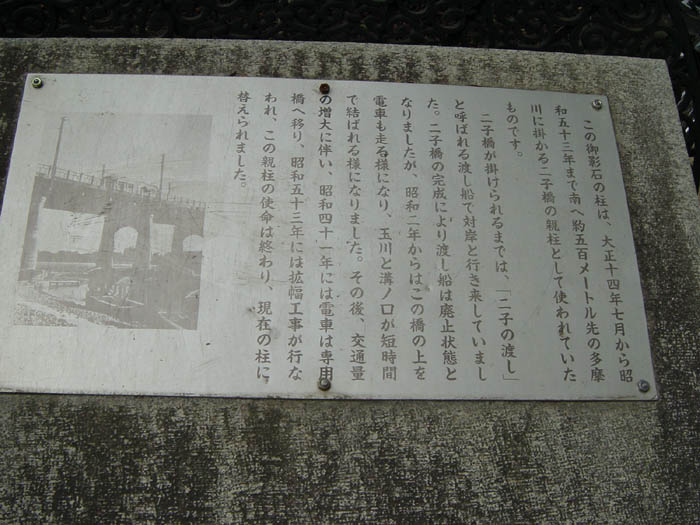 この御影石の柱は、大正十四年七月から昭
和五十三年まで南へ約五百メートル先の多摩
川に掛かる二子橋の親柱として使われていた
ものです。
二子橋が掛けられるまでは、「二子の渡し」
と呼ばれる渡し船で対岸と行き来していまし
た。二子橋の完成により渡し船は廃止状態と
なりましたが、昭和二年からはこの橋の上を
電車も走る様になり、玉川と溝ノ口が短時間
で結ばれる様になりました。その後、交通量
の増大に伴い、昭和四十一年には電車は専用
橋へ移り、昭和五十三年には拡幅工事が行な
われ、この親柱の使命は終わり、現在の柱に
替えられました。